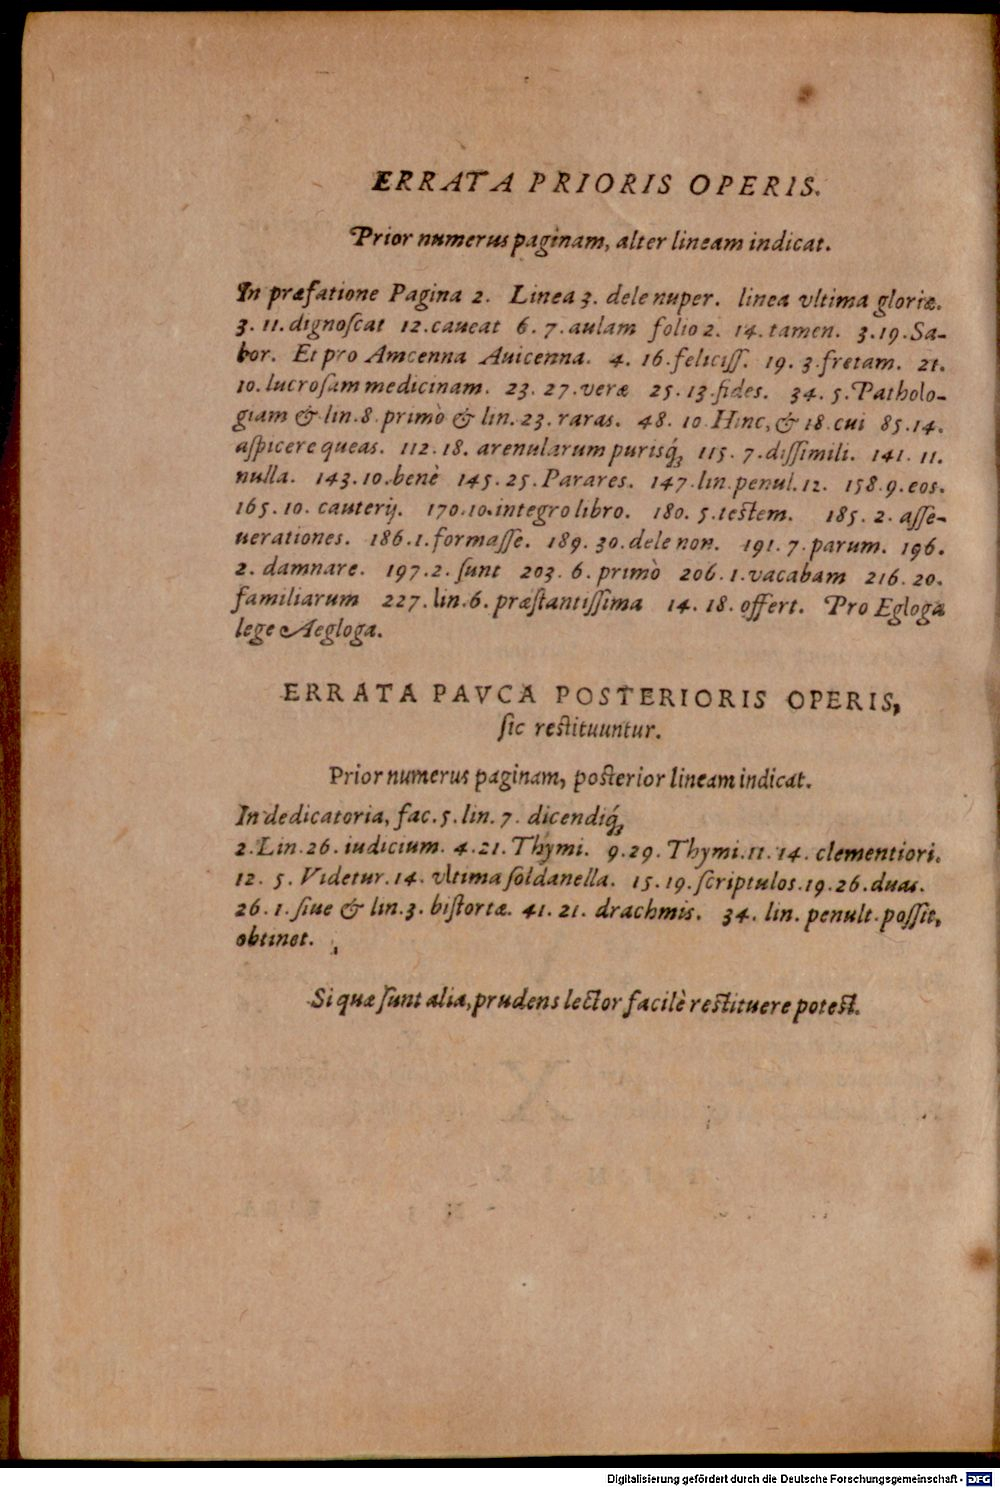 ERRATA PRIORIS OPERIS.
Prior numerus paginam, alter lineam indicat.
In præfatione Pagina 2. Linea 3. dele nuper. linea vltima gloriæ.
3. 11. dignoſcat 12. caueat 6. 7. aulam folio 2. 14. tamen. 3. 19. Sa-
bor. Et pro Amcenna Auicenna. 4. 16. feliciſſ. 19. 3. fretam. 21.
10. lucroſam medicinam. 23. 27. veræ 25. 13. fides. 34. 5. Patholo-
giam & lin. 8. primò & lin. 23. raras. 48. 10 Hinc, & 18. cui 85. 14.
aſpicere queas. 112. 18. arenularum purisq́; 115. 7. diſſimili. 141. 11.
nulla. 143. 10. benè 145. 25. Parares. 147. lin. penul. 12. 158. 9. eos.
165. 10. cauterij. 170. 10. integro libro. 180. 5. testem. 185. 2. aſſe-
uerationes. 186. 1. formaſſe. 189. 30. dele non. 191. 7. parum. 196.
2. damnare. 197. 2. ſunt 203. 6. primò 206. 1. vacabam 216. 20.
familiarum 227. lin. 6. præſtantiſſima 14. 18. offert. Pro Egloga
lege Aegloga.
ERRATA PAVCA POSTERIORIS OPERIS,
ſic restituuntur.
Prior numerus paginam, posterior lineam indicat.
In dedicatoria, fac. 5. lin. 7. dicendiq́;
2. Lin. 26. iudicium. 4. 21. Thymi. 9. 29. Thymi. 11. 14. clementiori.
12. 5. Videtur. 14. vltima ſoldanella. 15. 19. ſcriptulos. 19. 26. duas.
26. 1. ſiue & lin. 3. biſtortæ. 41. 21. drachmis. 34. lin. penult. poſſit,
obtinet.
Si quæ ſunt alia, prudens lector facilè restituere potest.
Digitalisierung gefördert durch die Deutsche Forschungsgemeinschaft - DFG